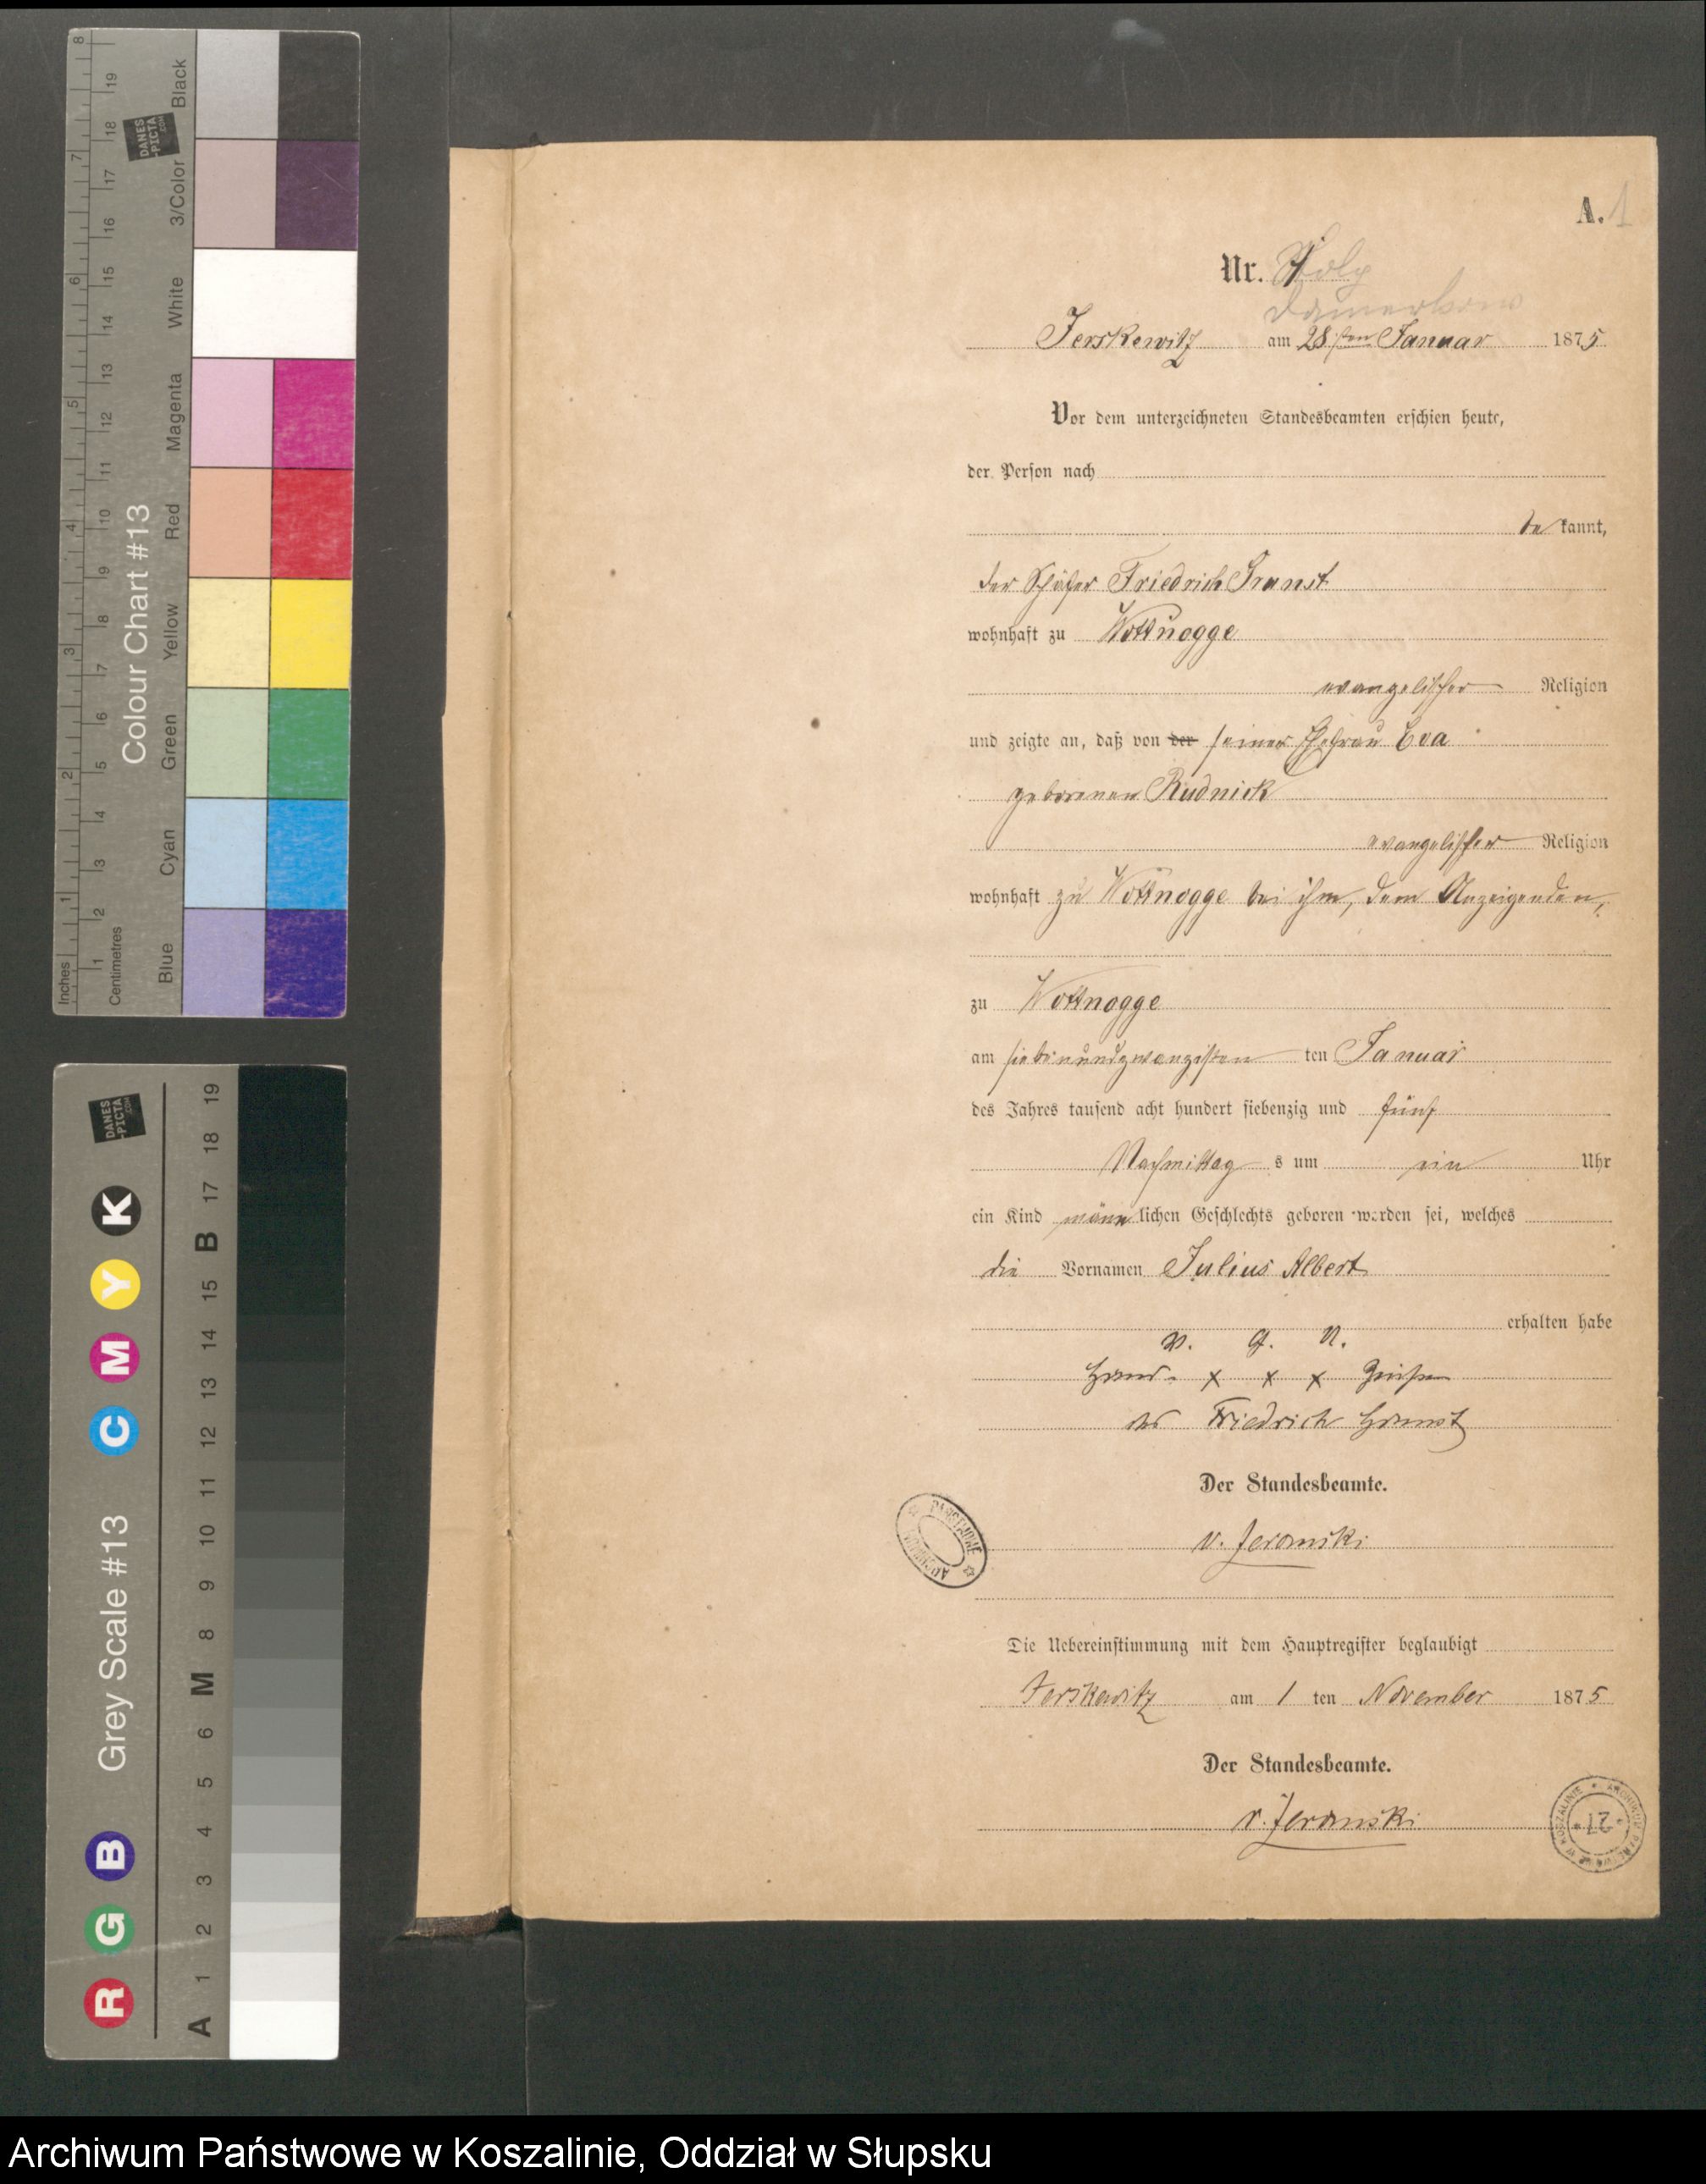 A. 1
Nr. 1
Stolp
Damerkow
Jerskewitz am 28sten Januar 1875
Vor dem unterzeichneten Standesbeamten erschien heute,
der Person nach
be kannt,
der Schäfer Friedrich
wohnhaft zu Wottnogge
evangelischer Religion
und zeigte an, daß von der seiner Ehefrau Eva
geborenen Rudnick
evangelischer Religion
wohnhaft zu Wottnogge bei ihm, dem Anzeigenden,
zu Wottnogge
am siebenundzwanzigsten ten Januar
des Jahres tausend acht hundert siebenzig und fünf
Nachmittag s um ein Uhr
ein Kind männ lichen Geschlechts geboren worden sei, welches
die Vornamen Julius Albert
erhalten habe
v. g. u.
Hand- x x x Zeichen
des Friedrich
Der Standesbeamte.
v.
Die Uebereinstimmung mit dem Hauptregister beglaubigt
Jerskewitz am 1 ten November 1875
Der Standesbeamte.
v.
PAŃSTWOWE ARCHIWUM
ARCHIWUM PAŃSTWOWE W KOSZALINIE
27
Colour Chart #13
Blue Cyan Green Yellow Red Magenta White 3/Color Black
Inches 1 2 3 4 5 6 7 8
Centimetres 1 2 3 4 5 6 7 8 9 10 11 12 13 14 15 16 17 18 19
DANES
-PICTA
.COM
Grey Scale #13
R G B C M Y K
DANES
-PICTA
.COM
A 1 2 3 4 5 6 M 8 9 10 11 12 13 14 15 B 17 18 19
Archiwum Państwowe w Koszalinie, Oddział w Słupsku